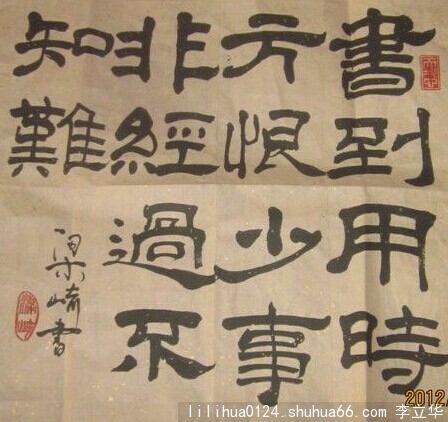 書到用時
方恨少事
非經過不
知難
梁崎書
2012
lilihua0124.shuhua66.com 李立华